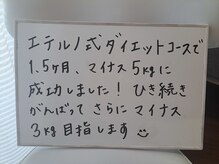 エテルノ式ダイエットコースで
1.5ヶ月、マイナス5kgに
成功しました！ひき続き
がんばって さらに マイナス
3kg目指します